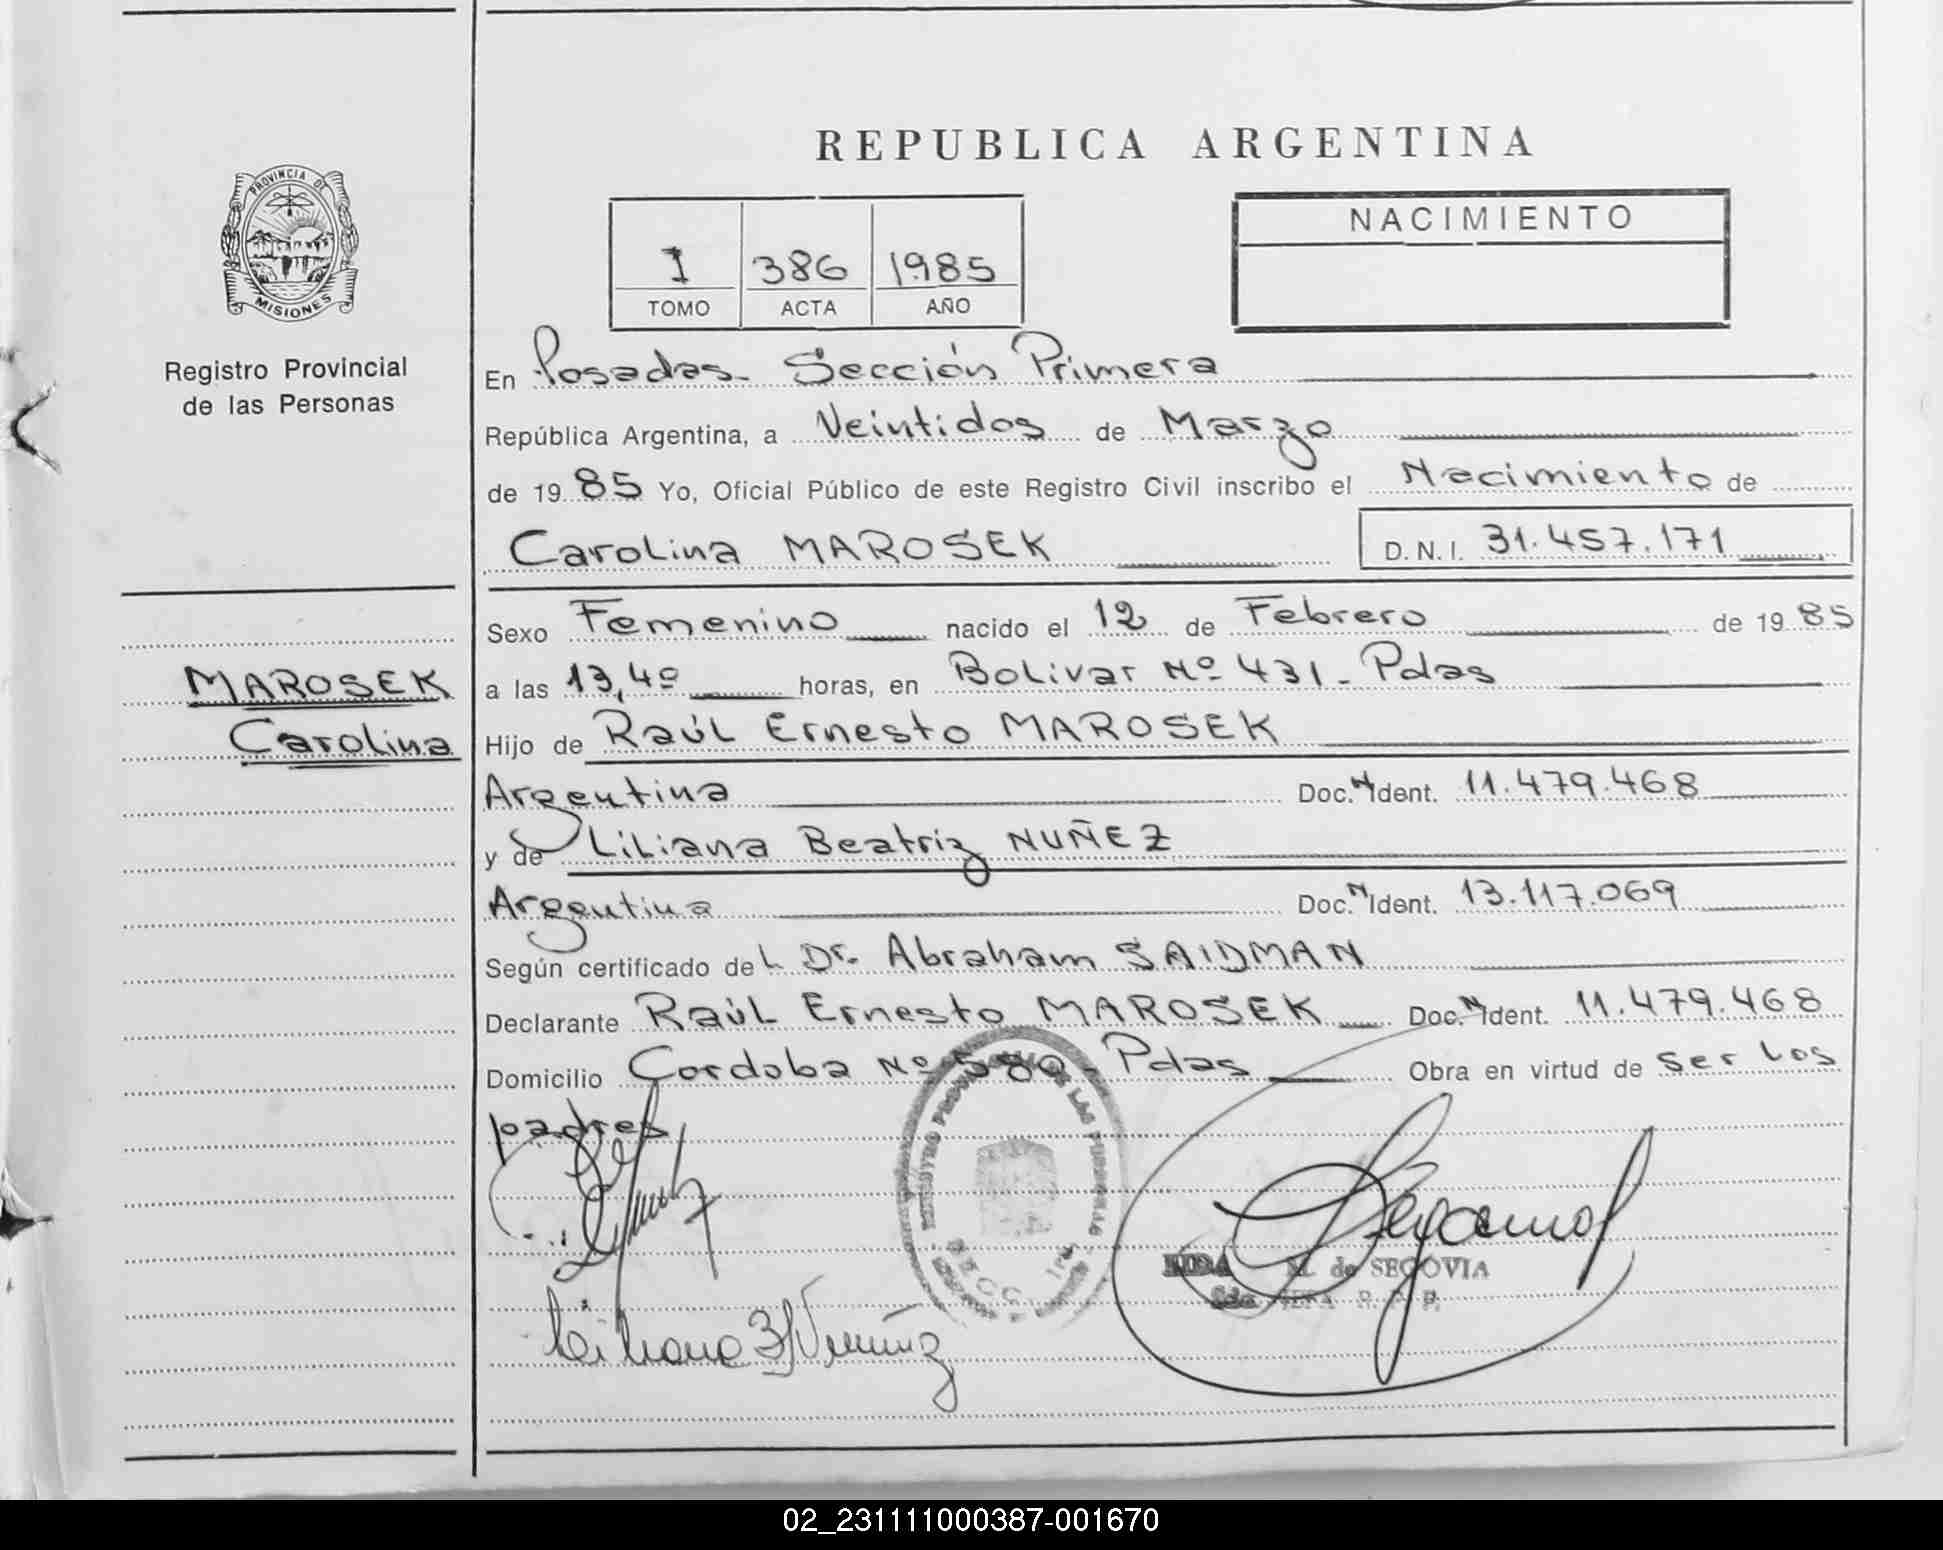 REPUBLICA ARGENTINA
PROVINCIA DE
MISIONES
Registro Provincial
de las Personas
I 386 1985
TOMO ACTA AÑO
NACIMIENTO
En Posadas. Sección Primera
República Argentina, a Veintidos de Marzo
de 1985 Yo, Oficial Público de este Registro Civil inscribo el Nacimiento de
Carolina MAROSEK D.N.I. 31.457.171
Sexo Femenino nacido el 12 de Febrero de 1985
MAROSEK
Carolina
a las 13,4º horas, en Bolivar Nº 431. Pdas
Hijo de Raúl Ernesto MAROSEK
Argentina Doc. N Ident. 11.479.468
y de Liliana Beatriz NUÑEZ
Argentina Doc. N Ident. 13.117.069
Según certificado del Dr. Abraham SAIDMAN
Declarante Raúl Ernesto MAROSEK Doc. N Ident. 11.479.468
Domicilio Cordoba Nº 580. Pdas Obra en virtud de ser los
padres
M. de SEGOVIA
Liliana B Nuñez
02_231111000387-001670